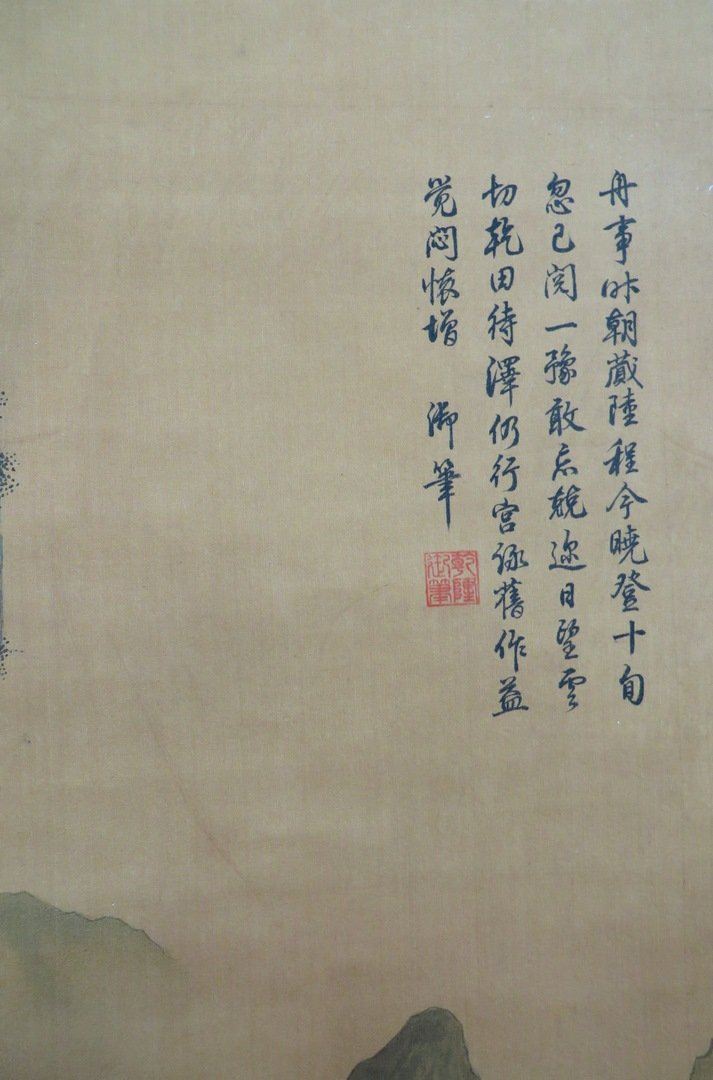 舟事昨朝蕆陸程今曉登十旬
忽已閱一豫敢忘兢邇日望雲
切乾田待澤仍行宮詠舊作益
覺悶懷增 御筆
乾隆
御筆